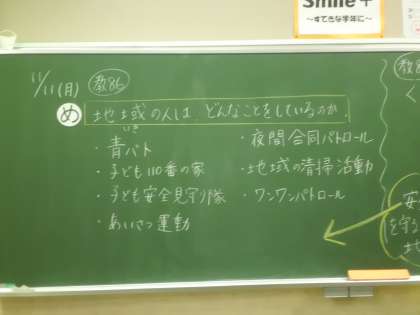 Smile+
～すてきな学年に～
11/11(月)
教86
め 地域の人は どんなことをしているのか。
いき
・青パト
・子ども110番の家
・子ども安全見守り隊
・あいさつ運動
・夜間合同パトロール
・地域の清掃活動
・ワンワンパトロール
教8
く
安
を守る
地